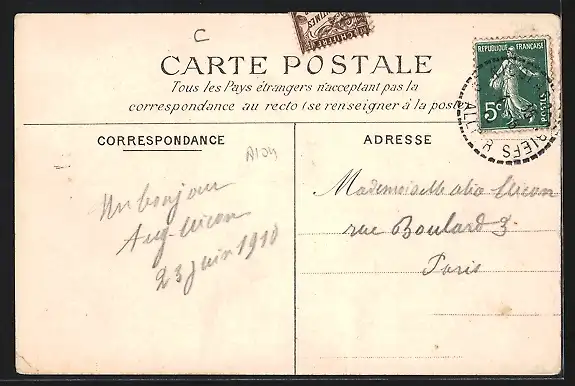 C
CENTIMES
CARTE POSTALE
Tous les Pays étrangers n'acceptent pas la
correspondance au recto (se renseigner à la poste
REPUBLIQUE FRANÇAISE
5c
POSTES
BRIEFS
CORRESPONDANCE
ADRESSE
A104
Un bonjour
Aug.
23 Juin 1910
Mademoiselle
rue Boulard 3.
Paris